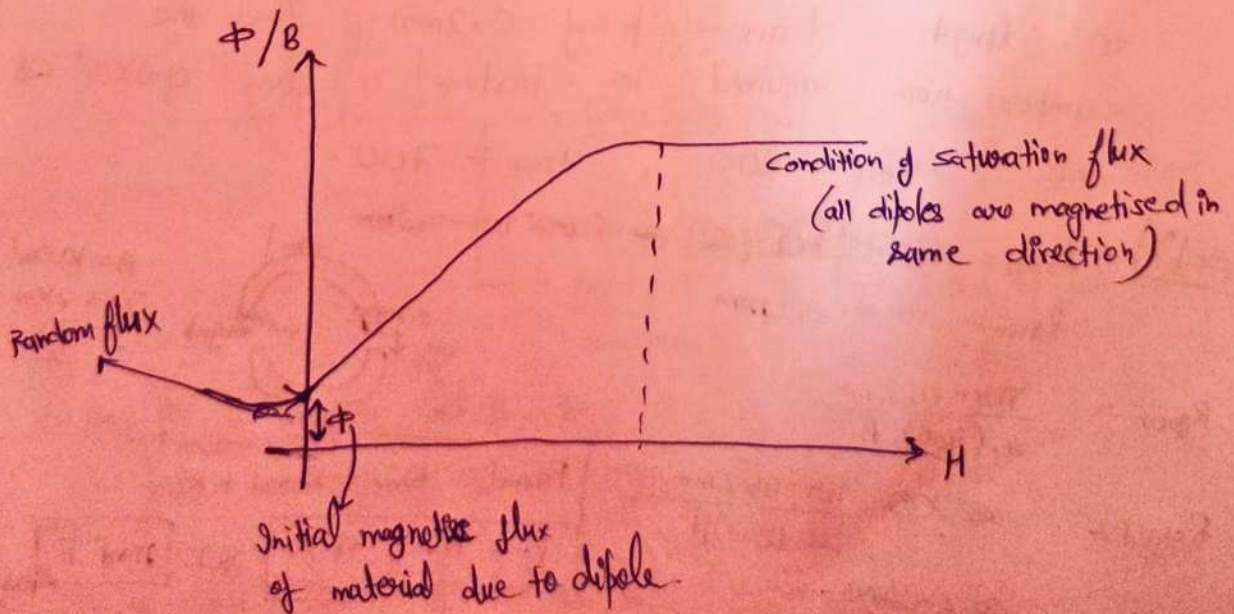 Φ/B
Condition of saturation flux
(all dipoles are magnetised in
same direction)
Random flux
Φ
H
Initial magnetic flux
of material due to dipole